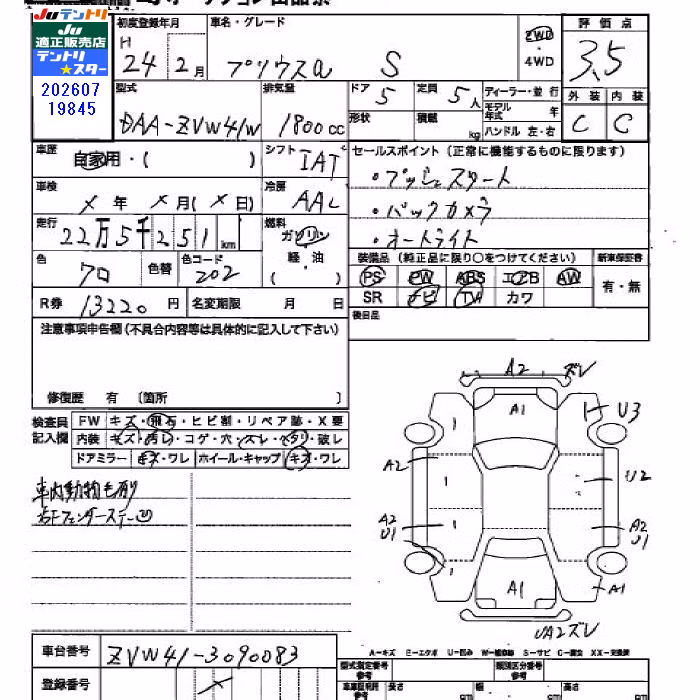 JUテントリ
JU
適正販売店
テントリ
★スター
202607
19845
初度登録年月
H
24 2月
車名・グレード
プリウスα S
2WD
・
4WD
評価点
3.5
外装 内装
C C
型式
DAA-ZVW41W
排気量
1800cc
ドア 5
定員 5人
形状
積載 kg
ディーラー・並行
モデル年式 年
ハンドル 左・右
車歴
自家用・( )
シフト
IAT
セールスポイント(正常に機能するものに限ります)
・プッシュスタート
・バックカメラ
・オートライト
車検
× 年 × 月(× 日)
冷房
AAC
走行
22万5千251km
燃料
ガソリン
・
軽・油
( )
色
クロ
色替
色コード
202
装備品(純正品に限り○をつけてください)
PS PW ABS エアB AW
SR ナビ TV カワ
新車保証書
有・無
後日品
R券 13220円
名変期限 月 日
注意事項申告欄(不具合内容等は具体的に記入して下さい)
修復歴 有 〔箇所 〕
検査員
記入欄
FW キズ・飛石・ヒビ割・リペア跡・X要
内装 キズ・汚レ・コゲ・穴・スレ・ヘタリ・破レ
ドアミラー キズ・ワレ ホイール・キャップ キズ・ワレ
車内動物毛有り
右Fフェンダーステー凹
A2 ズレ
A1
U3
A2
U2
A2
U1
A2
U1
A1
A1
UA2ズレ
A-キズ E-エクボ U-凹み W-補修跡 S-サビ C-腐食 XX-交換済
車台番号 ZVW41-3090083
登録番号 ×
型式指定番号
類別区分番号
長さ
幅
高さ
cm
cm
cm